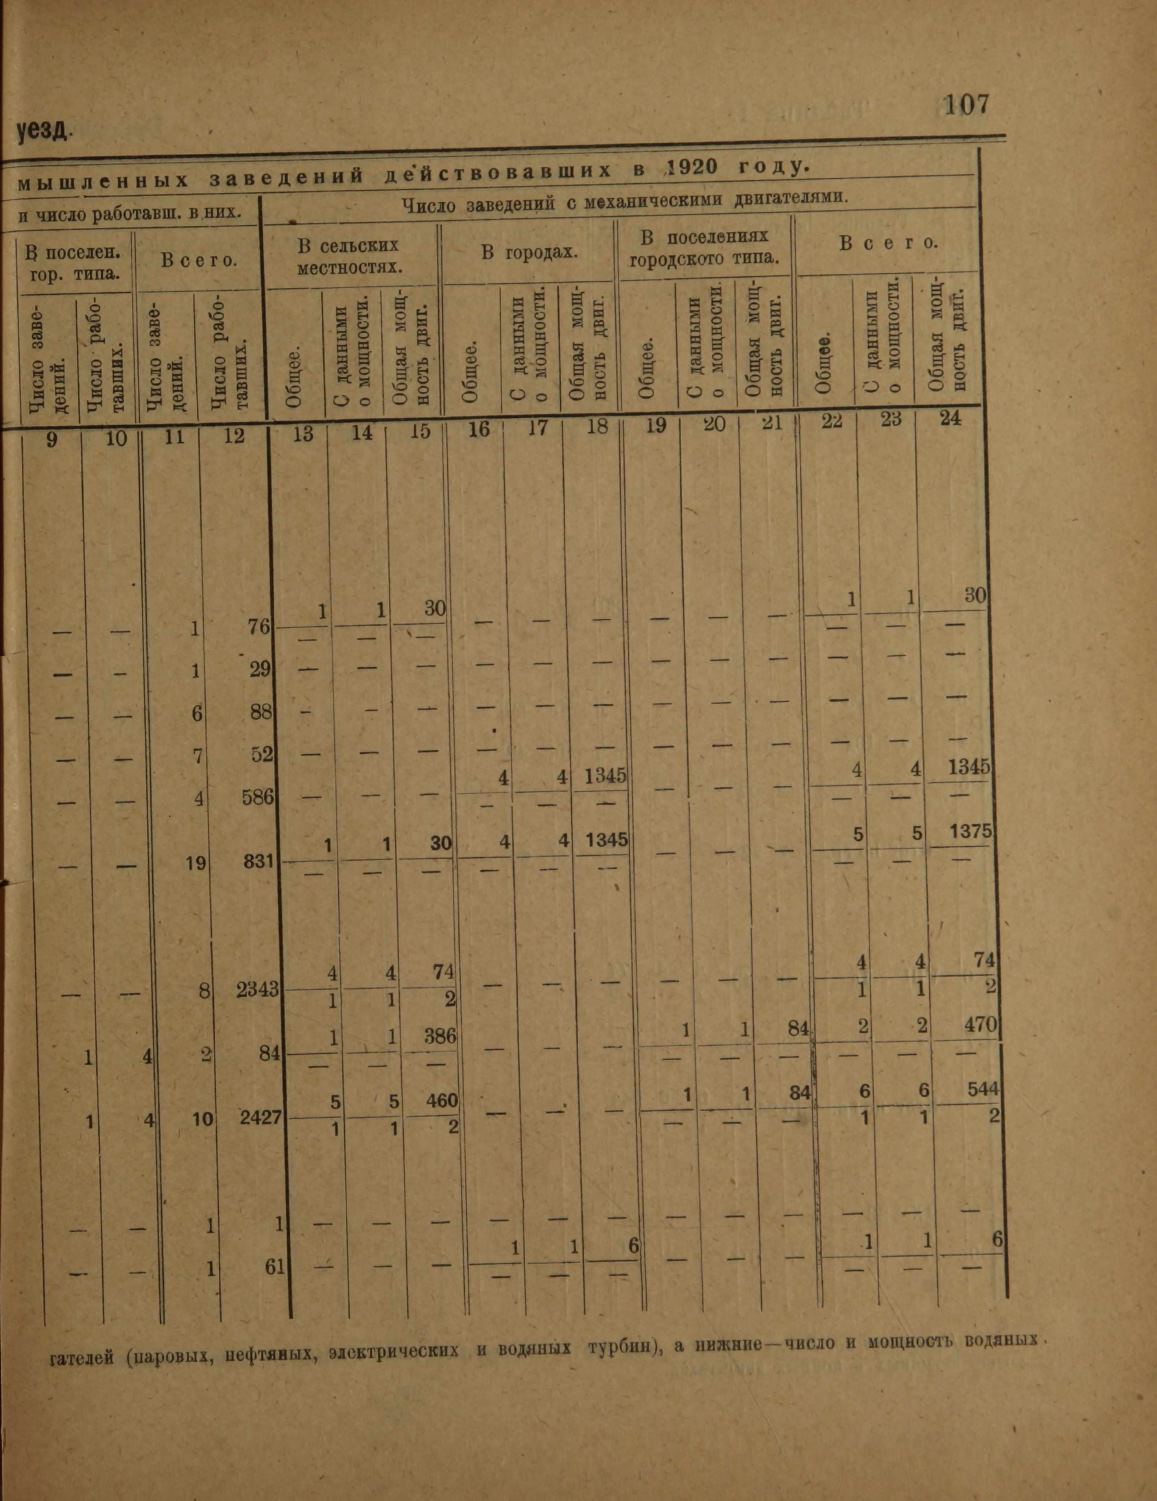 107
уезд.
мышленных заведений действовавших в 1920 году.
и число работавш. в них. Число заведений с механическими двигателями.
В поселен. гор. типа. Всего. В сельских местностях. В городах. В поселениях городского типа. Всего.
Число заведений. Число работавших. Число заведений. Число работавших. Общее. С данными о мощности. Общая мощность двиг. Общее. С данными о мощности. Общая мощность двиг. Общее. С данными о мощности. Общая мощность двиг. Общее. С данными о мощности. Общая мощность двиг.
9 10 11 12 13 14 15 16 17 18 19 20 21 22 23 24
1 1 30 1 1 30
— — 1 76 — — — — — — — — — — — —
— — 1 29 — — — — — — — — — — — —
— — 6 88 — — — — — — — — — — — —
— — 7 52 — — — — — — — — — — — —
4 4 1345 4 4 1345
— — 4 586 — — — — — — — — — — — —
1 1 30 4 4 1345 5 5 1375
— — 19 831 — — — — — — — — — — — —
4 4 74 4 4 74
— — 8 2343 — — — — — —
1 1 2 1 1 2
1 1 386 1 1 84 2 2 470
1 4 2 84 — — — — — — — — — — — —
5 5 460 1 1 84 6 6 544
1 4 10 2427 — — —
1 1 2 — — — 1 1 2
— — 1 1 — — — — — — — — — — — —
1 1 6 1 1 6
— — 1 61 — — — — — — — — — — — —
гателей (паровых, нефтяных, электрических и водяных турбин), а нижние—число и мощность водяных